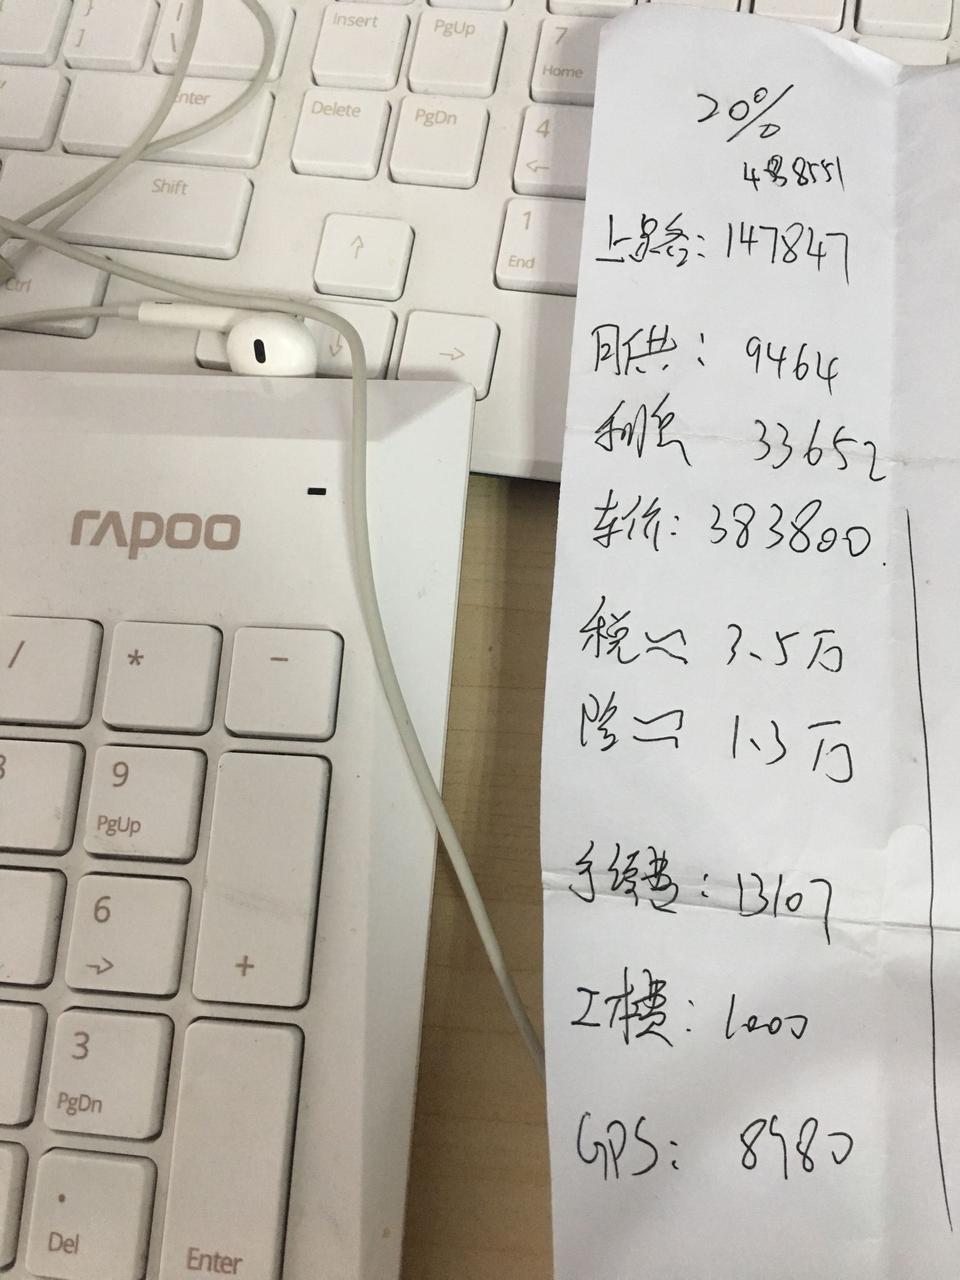 }
]
|
\
Insert
PgUp
7
Home
Enter
Delete
PgDn
4
←
Shift
↑
1
End
Ctrl
↓
→
rapoo
/
*
-
9
PgUp
6
→
+
3
PgDn
.
Del
Enter
20%
488551
上路: 147847
月供: 9464
利息 33652
车价: 383800.
税≈ 3.5万
险≈ 1.3万
手续费: 13107
工本费: 1000
GPS: 8980